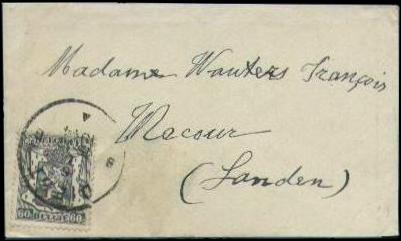 Madame Wauters François
Macour
(Landen)
60 60